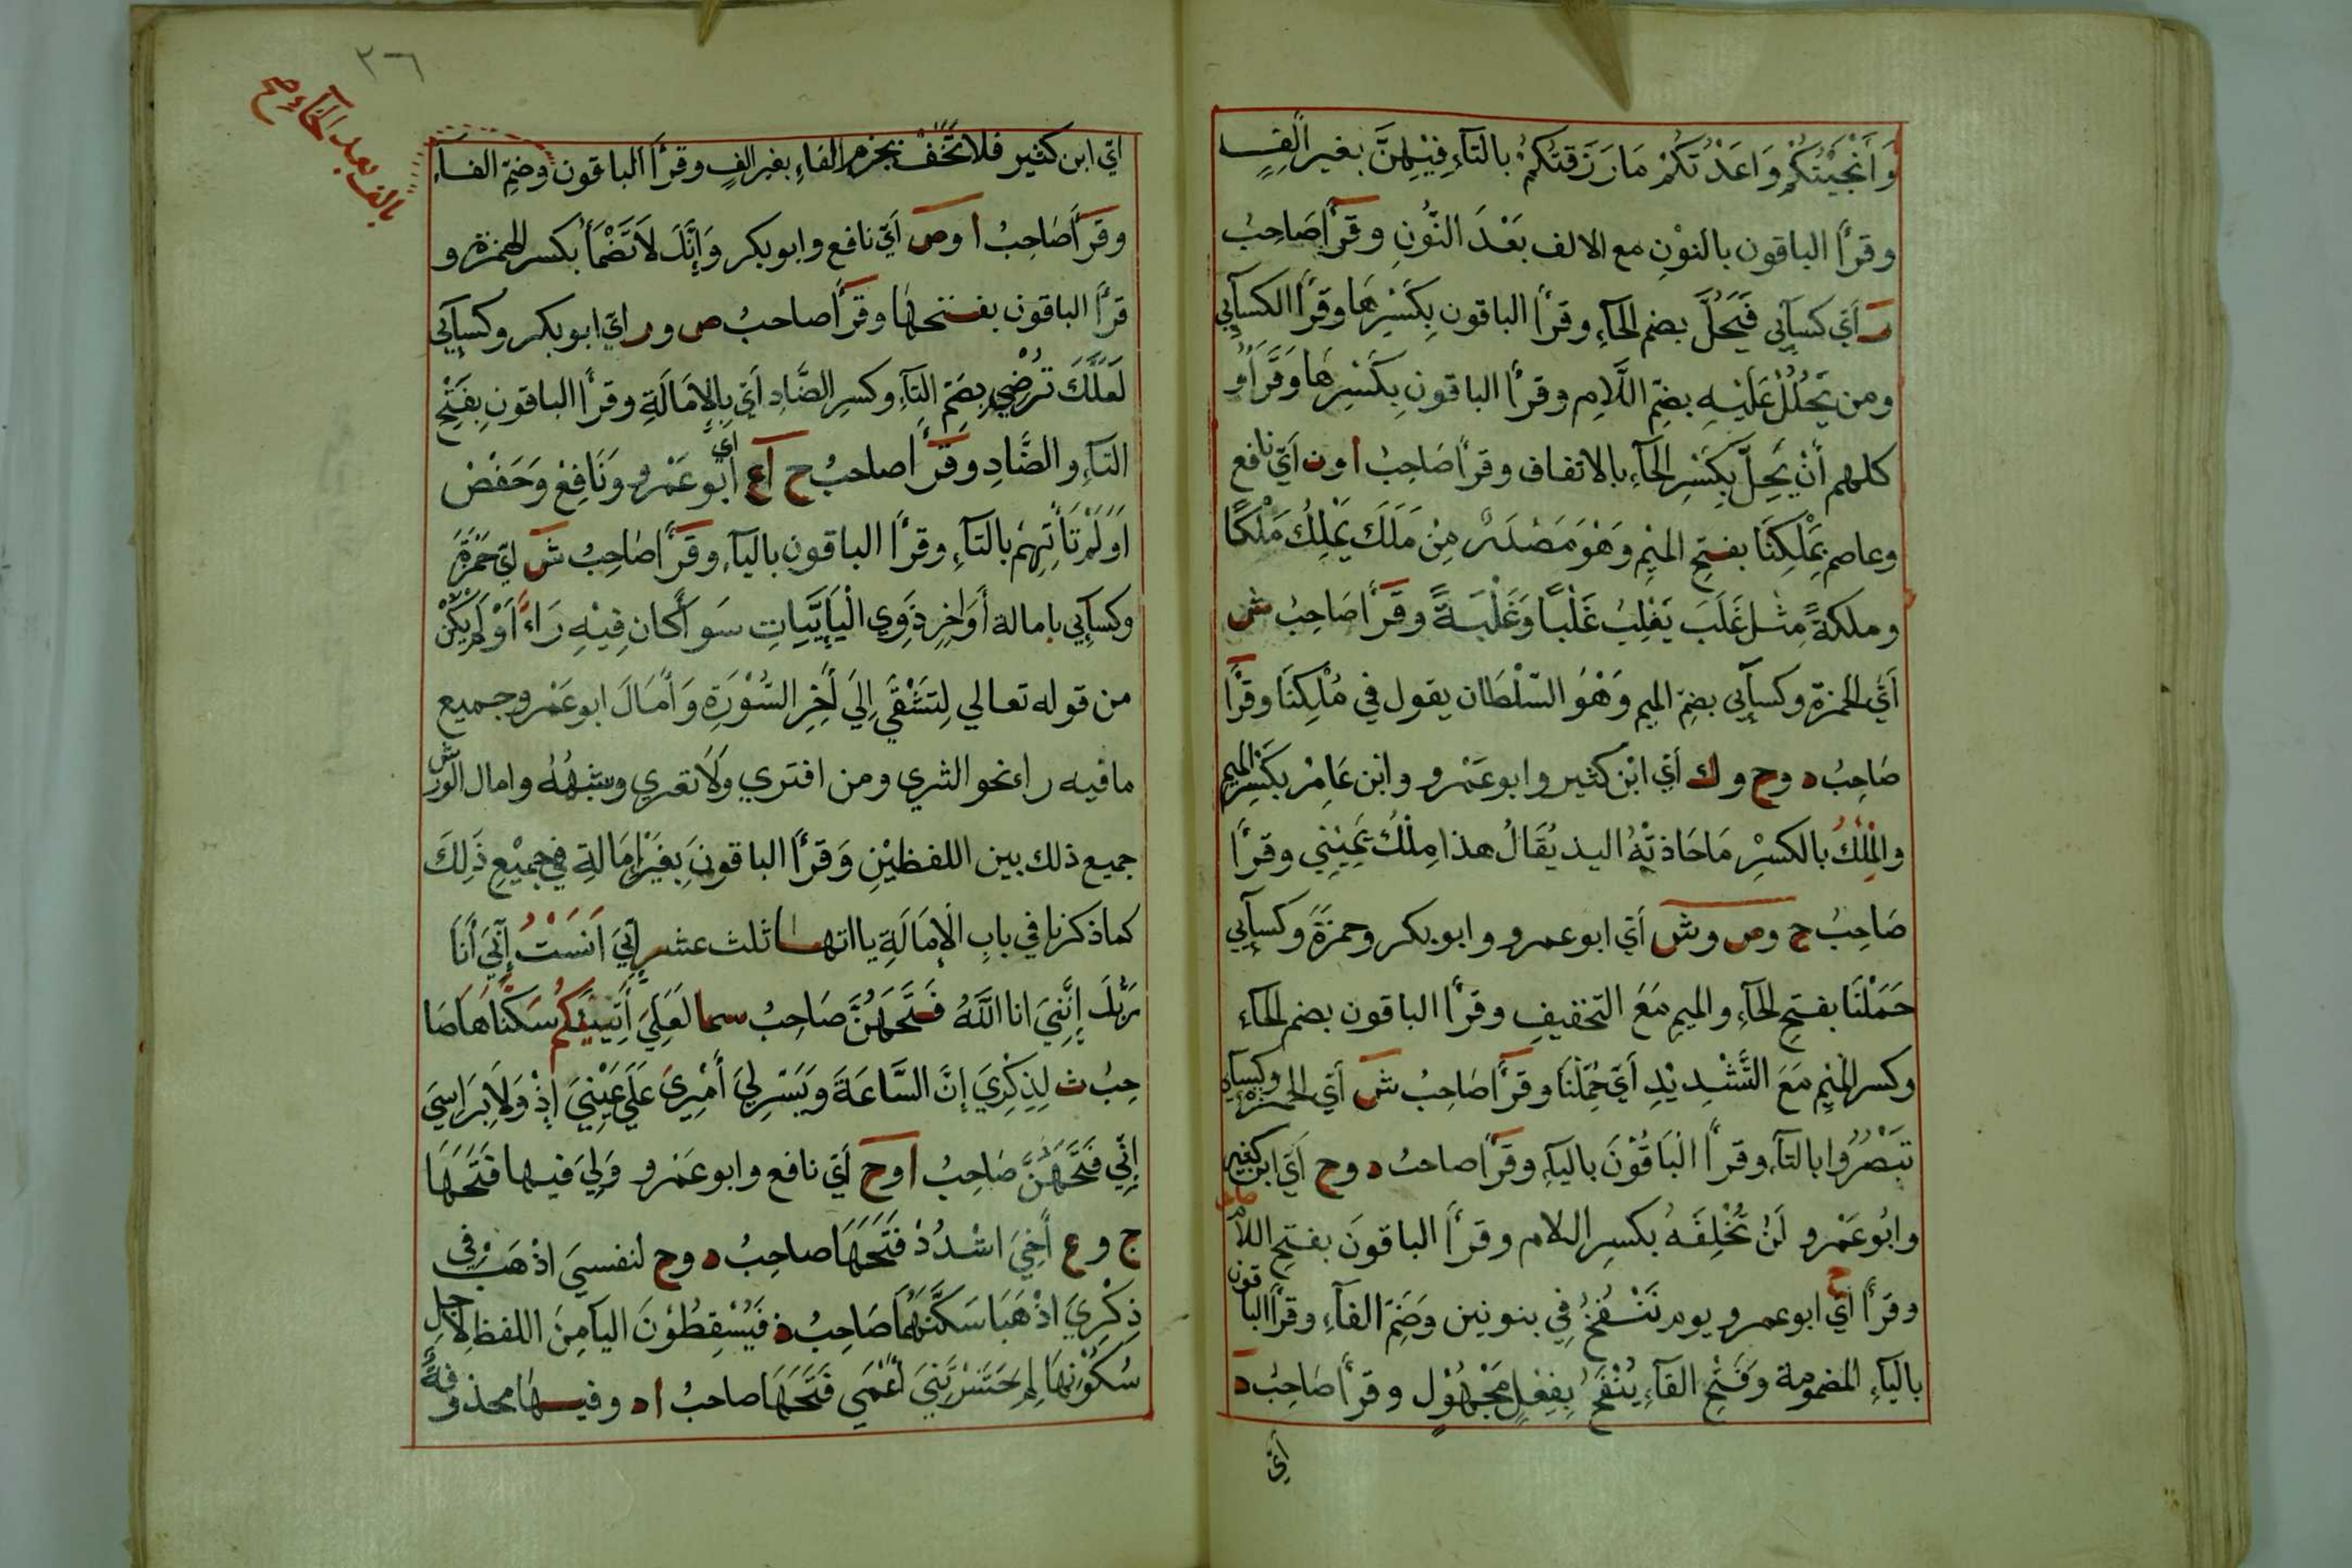 وَاَنْجَيْتُكُمْ وَاعَدْتُكُمْ مَا رَزَقْتُكُمْ بالتآءِ فِيْهِنَّ بغير الفٍ
وقرأ الباقون بالنوْنِ مع الالف بَعْدَ النُّونِ وقرأ صَاحِبُ
ر اَيْ كسآئى فَيَحُلَّ بضم الحآءِ وقرأ الباقون بِكَسْرِهَا وقرأ الكسآئي
ومن يَحْلُلْ عَلَيْهِ بضمِّ اللَّامِ وقرأ الباقونِ بِكَسْرِهَا وَقَرَأُو
كلهم أَنْ يَحِلَّ بِكَسْرِ الحآءِ بالاتفاق وقرأ صَاحِبُ ا ون اَيْ نافع
وعاصم بِمَلْكِنَا بفتحِ الميْمِ وَهْوَ مَصْدَرٌ مِنْ مَلَكَ يَمْلِكُ مَلْكًا
وملكةً مِثْل غَلَبَ يَغْلِبُ غَلْبًا وَغَلْبَةً وقَرَأ صَاحِبُ ش
اَيْ الحمزة وكسآئى بضمِّ الميم وَهْوَ السّلْطَان يقول في مُلْكِنَا وقرأ
صَاحِبُ د وح وك اَيْ ابْن كثير وابوعَمْرو وابن عَامِرْ بكَسْرِ الميم
والمِلْكُ بالكسْرِ مَا حَاذتْهُ اليد يُقَالُ هذا مِلْكُ يَمِيْنِي وقرأ
صَاحِبُ ح وص وش اَيْ ابوعمرو وابوبكر وحمزَةَ وكسآئي
حَمَلْنَا بفتحِ الحآءِ والميمِ مَعَ التخفيفِ وقرأ الباقون بضم الحآء
وكسر الميْمِ مَعَ التَّشْدِيْدِ اَيْ حُمِّلْنَا وقرأ صَاحِبُ ش اَيْ الحمزة وكسآء
تبَصُرُوا بالتآءِ وقرأ الْبَاقُوْنَ باليآءِ وقرأ صاحبُ د وح اَيْ ابن كثير
وابُوعَمْرو لَنْ تُخْلِفَهُ بكسرِ اللام وقرأ الباقونَ بفتحِ اللام
وقرأ ح اَيْ ابوعمرو يوم نَنْفُخُ فِي بنونين وَضَمِّ الفآءِ وقرأ الباقون
باليآءِ المضمومة وَفَتْحِ الفآءِ يُنْفَخُ بِفِعْلٍ مَجْهُوْلٍ وقرأ صَاحِبُ د
اَيْ
٣٦
بالف بعد الخآءِ صح
اَيْ ابن كثير فلا تَخَفْ بجزم الفاءِ بغير الفٍ وقرأ الباقون وضمِّ الفآءِ
وقرَأ صَاحِبُ ا وص اَيْ نافع وابوبكر وَاِنَّكَ لاَ تَظْمَأُ بكسر الهمزة و
قرأ الباقون بفتحهَا وقرأ صاحبُ ص ور اَيْ ابوبكر وكسآئي
لَعَلَّكَ تُرْضِي بضَمِّ التآءِ وكسرِ الضَّادِ اَيْ بِالاِمَالَةِ وقرأ الباقونِ بفَتْحِ
التآءِ والضَّادِ وقرَأ صاحبُ ح ا ع اَيْ اَبُو عَمْرو وَنَافِعْ وَحَفْصْ
اَوَلَمْ تَأْتِهِمْ بالتآءِ وقرأ الباقون باليآءِ وقرَأ صَاحِبُ ش اَيْ حَمْزَةَ
وكسآئي بامالة أَوَاخِرِ ذَوِي الْيَآئِيَّاتِ سَوآ كَان فِيْهِ رَاءٌ اَوْ لَمْ يَكُنْ
من قوله تعالي لِتَشْقَي اِلَي آخِرِ السُّوْرَةِ وَاَمَالَ ابوعَمْرو جميع
مافيه راء نحو الثري ومن افتري وَلاَ تعري وشبهُهُ وامال الورش
جميع ذلك بين اللفظيْنِ وَقرأ الباقونَ بِغَيْرِ اِمَالةٍ فِي جميْعِ ذَلِكَ
كما ذكرنا في بابِ الْاِمَالَةِ يااتها ثلث عشر اِنِّيَ آنَسْتُ اِنِّيَ أَنَا
رَبُّكَ اِنَّنِيَ انا اللَّهُ فَتَحَهُنَّ صَاحِبُ سما لَعَلِّيَ اَتِيْكُمْ سَكَّنَاهَا صَا
حِبُ ث لِذِكْرِيَ اِنَّ السَّاعَةَ وَيَسِّرْ لِيَ أَمْرِيَ عَلَي عَيْنِيَ إِذْ وَلَا بِرَاسِيَ
إِنِّي فَتَحَهُنَّ صَاحِبُ ا وح اَيْ نافع وابوعَمْرو وَلِيَ فيها فَتَحَهَا
ج وع أَخِيَ اشْدُدْ فَتَحَهَا صاحِبُ د وح لنفسيَ اذْهَبْ وفي
ذِكْرِيَ اذْهَبَا سَكَّنَهُمَا صَاحِبُ ذ فَيُسْقِطُوْنَ اليآ مِنَ اللفظِ لاجل
سُكُوْنِهَا لِمَ حَشَرْتَنِيَ أَعْمَي فَتَحَهَا صاحبُ ا د وفيها محذوفة